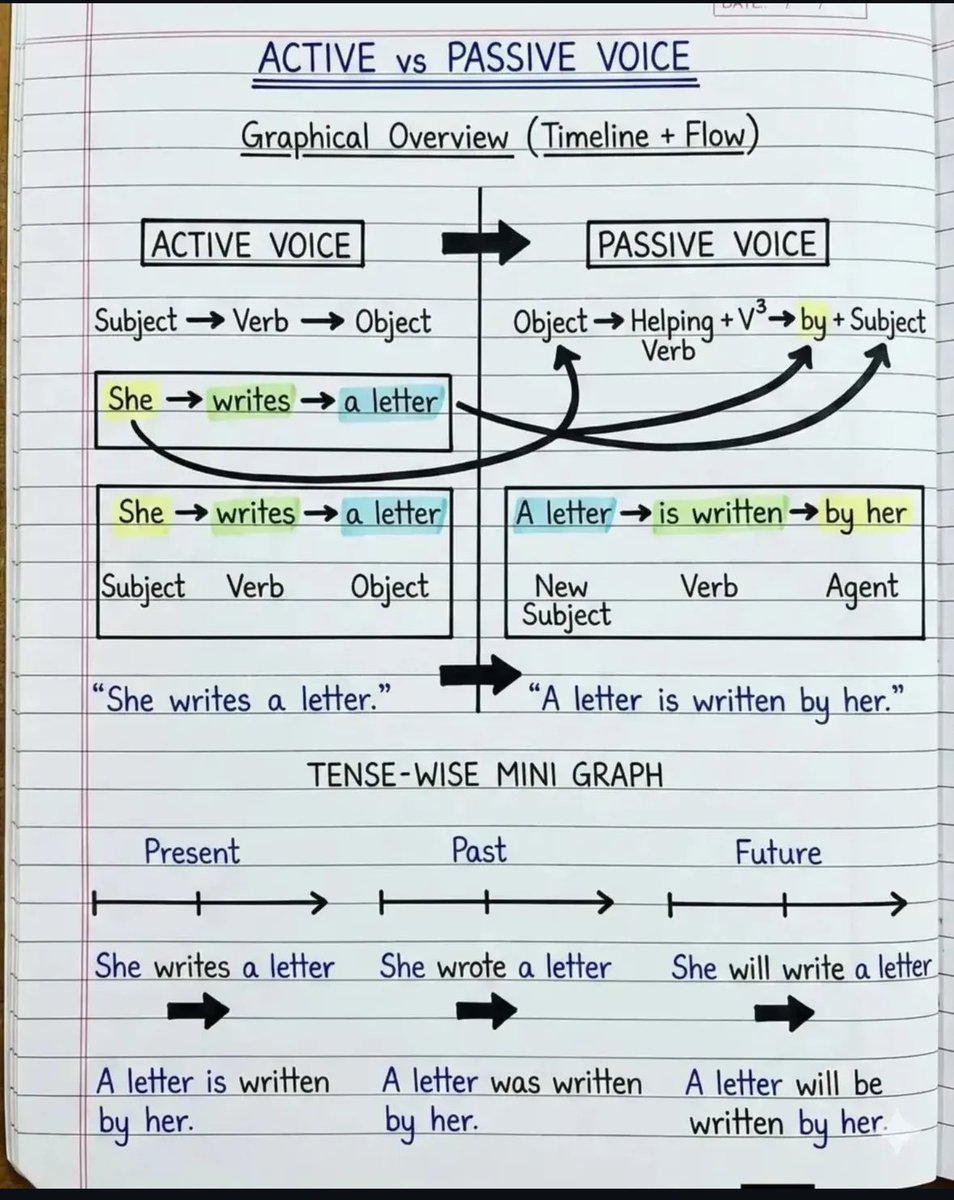 DATE: / /
ACTIVE vs PASSIVE VOICE
Graphical Overview (Timeline + Flow)
ACTIVE VOICE → PASSIVE VOICE
Subject → Verb → Object
Object → Helping Verb + V³ → by + Subject
She → writes → a letter
She → writes → a letter
Subject Verb Object
A letter → is written → by her
New Subject Verb Agent
“She writes a letter.” → “A letter is written by her.”
TENSE-WISE MINI GRAPH
Present Past Future
She writes a letter
She wrote a letter
She will write a letter
A letter is written
by her.
A letter was written
by her.
A letter will be
written by her.